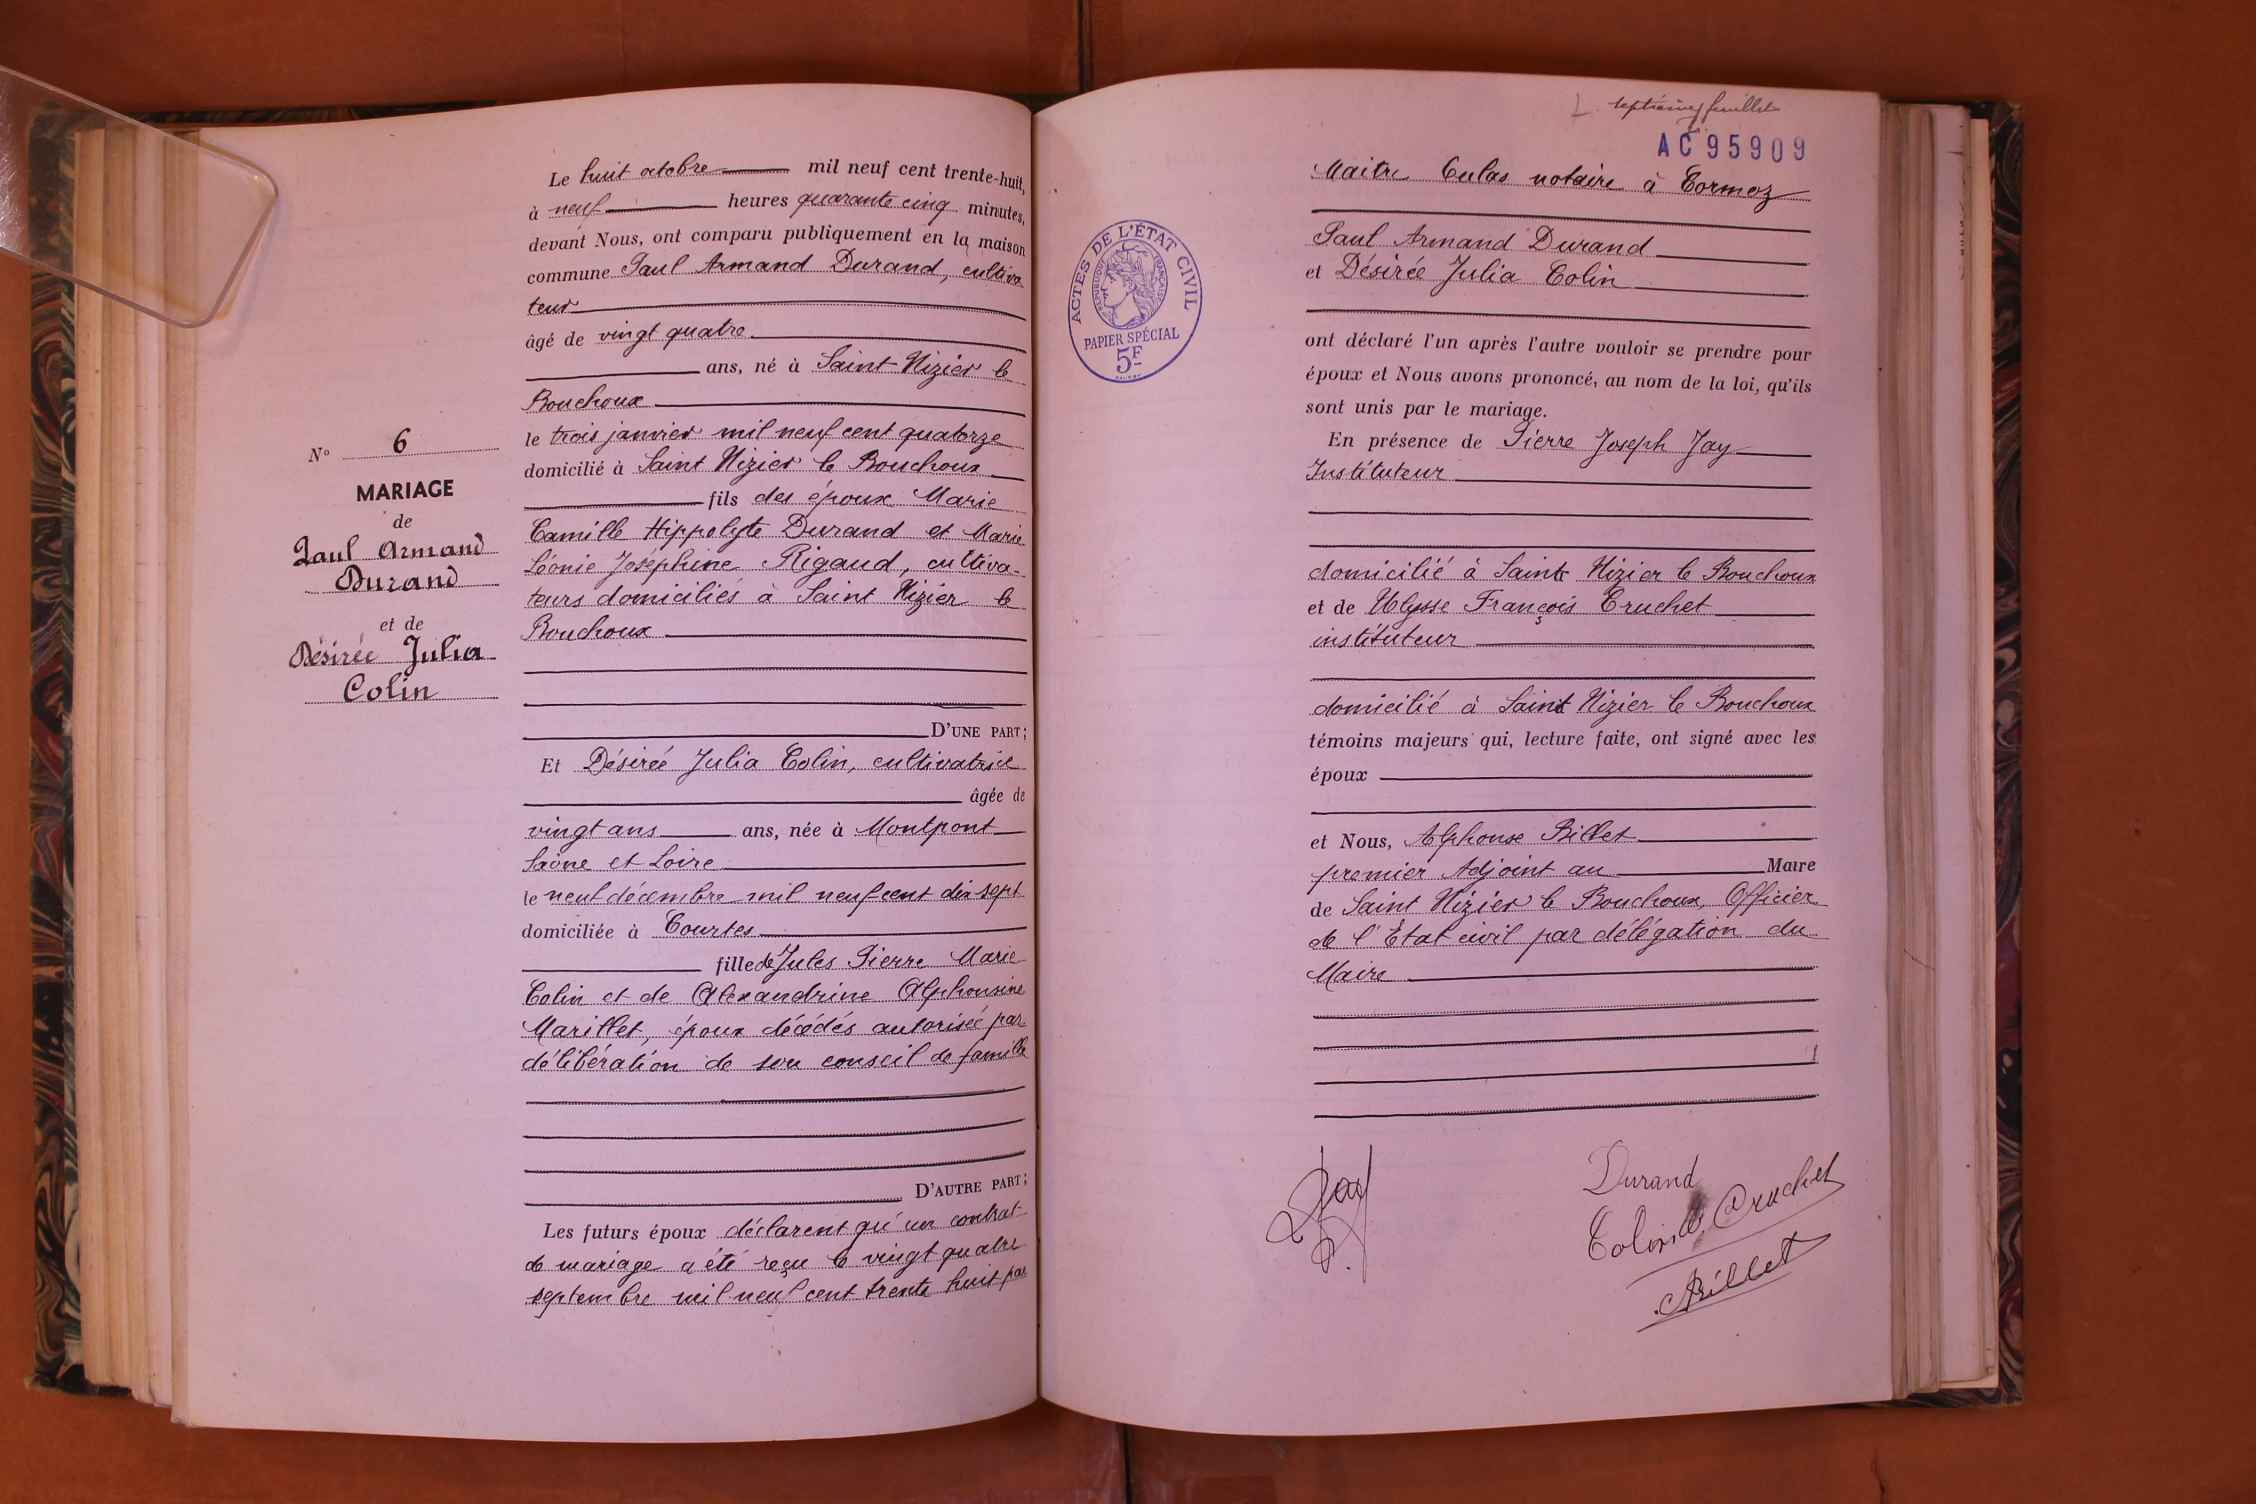 N° 6
MARIAGE
de
Paul Armand
Durand
et de
Désirée Julia
Colin
Le huit octobre mil neuf cent trente-huit,
à neuf heures quarante cinq minutes,
devant Nous, ont comparu publiquement en la maison
commune Paul Armand Durand, cultiva
teur
âgé de vingt quatre
ans, né à Saint-Nizier le
Bouchoux
le trois janvier mil neuf cent quatorze
domicilié à Saint Nizier le Bouchoux
fils des époux Marie
Camille Hippolyte Durand et Marie
Léonie Joséphine Rigaud, cultiva-
teurs domiciliés à Saint Nizier le
Bouchoux
D'UNE PART;
Et Désirée Julia Colin, cultivatrice
âgée de
vingt ans ans, née à Montpont
Saône et Loire
le neuf décembre mil neuf cent dix sept
domiciliée à Courtes
fille de Jules Pierre Marie
Colin et de Alexandrine Alphonsine
Marillet, époux décédés autorisée par
délibération de son conseil de famille
D'AUTRE PART;
Les futurs époux déclarent qu'un contrat
de mariage a été reçu le vingt quatre
septembre mil neuf cent trente huit par
septième feuillet
AC 95909
ACTES DE L'ÉTAT CIVIL
RÉPUBLIQUE FRANÇAISE
PAPIER SPÉCIAL
5F
Maitre Culas notaire à Cormoz
Paul Armand Durand
et Désirée Julia Colin
ont déclaré l'un après l'autre vouloir se prendre pour
époux et Nous avons prononcé, au nom de la loi, qu'ils
sont unis par le mariage.
En présence de Pierre Joseph Jay
Instituteur
domicilié à Saint Nizier le Bouchoux
et de Ulysse François Cruchet
instituteur
domicilié à Saint Nizier le Bouchoux
témoins majeurs qui, lecture faite, ont signé avec les
époux
et Nous, Alphonse Billet
premier Adjoint au Maire
de Saint Nizier le Bouchoux, Officier
de l'État civil par délégation du
Maire
Jay
Durand
Colin
Cruchet
Billet